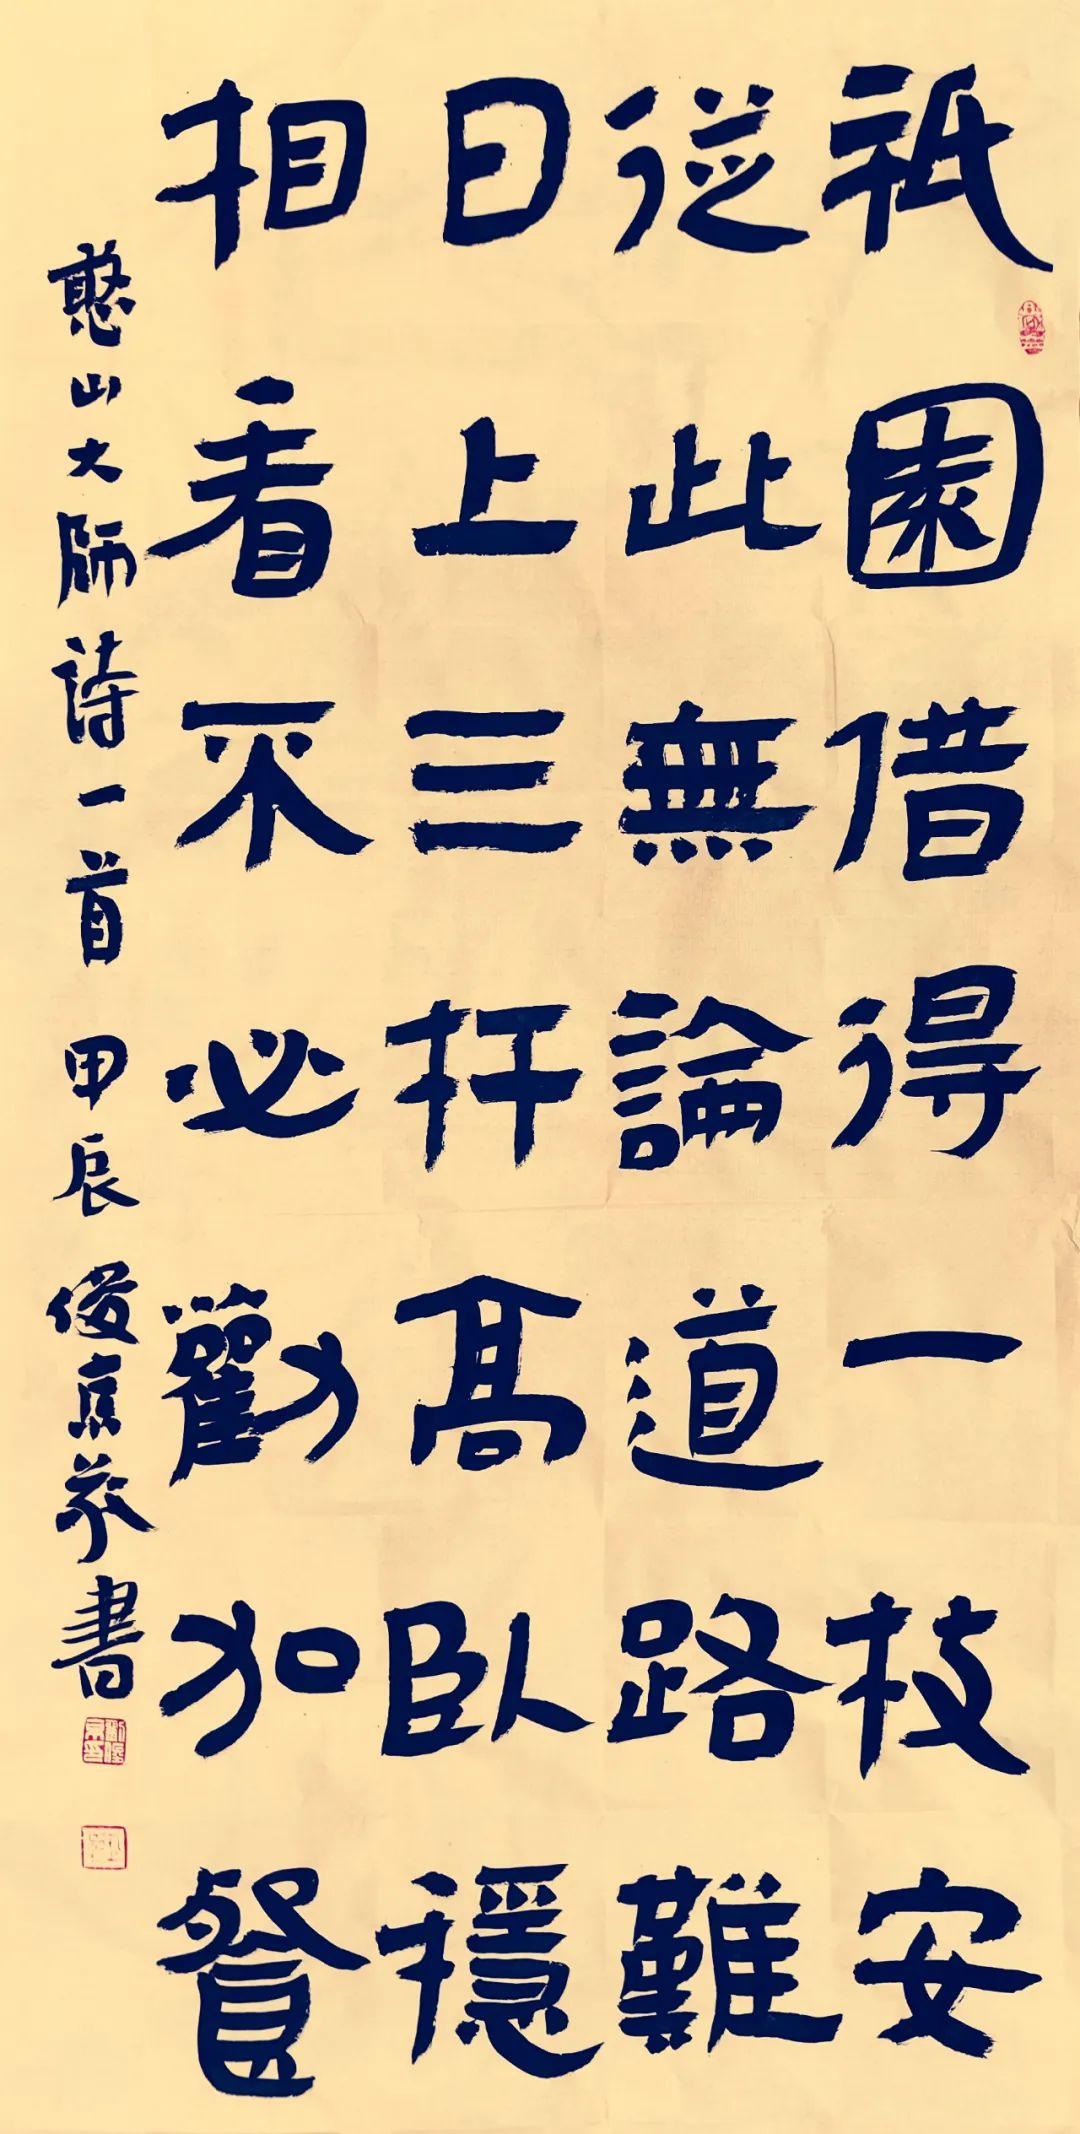 祇園借得一枝安
從此無論道路難
日上三杆高臥穩
相看不必勸加餐
憨山大師詩一首 甲辰 俊京敬書